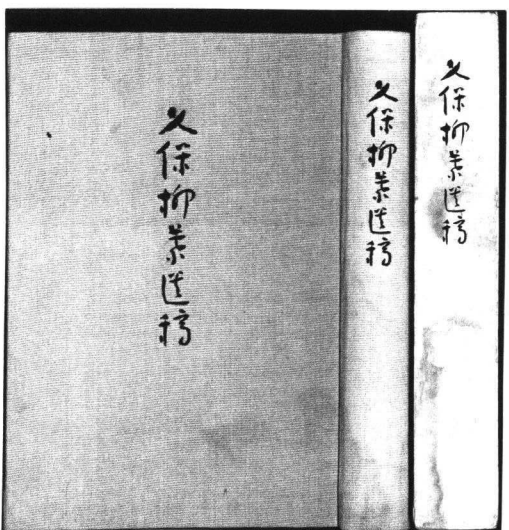 久保柳葉遺稿
久保柳葉遺稿
久保柳葉遺稿